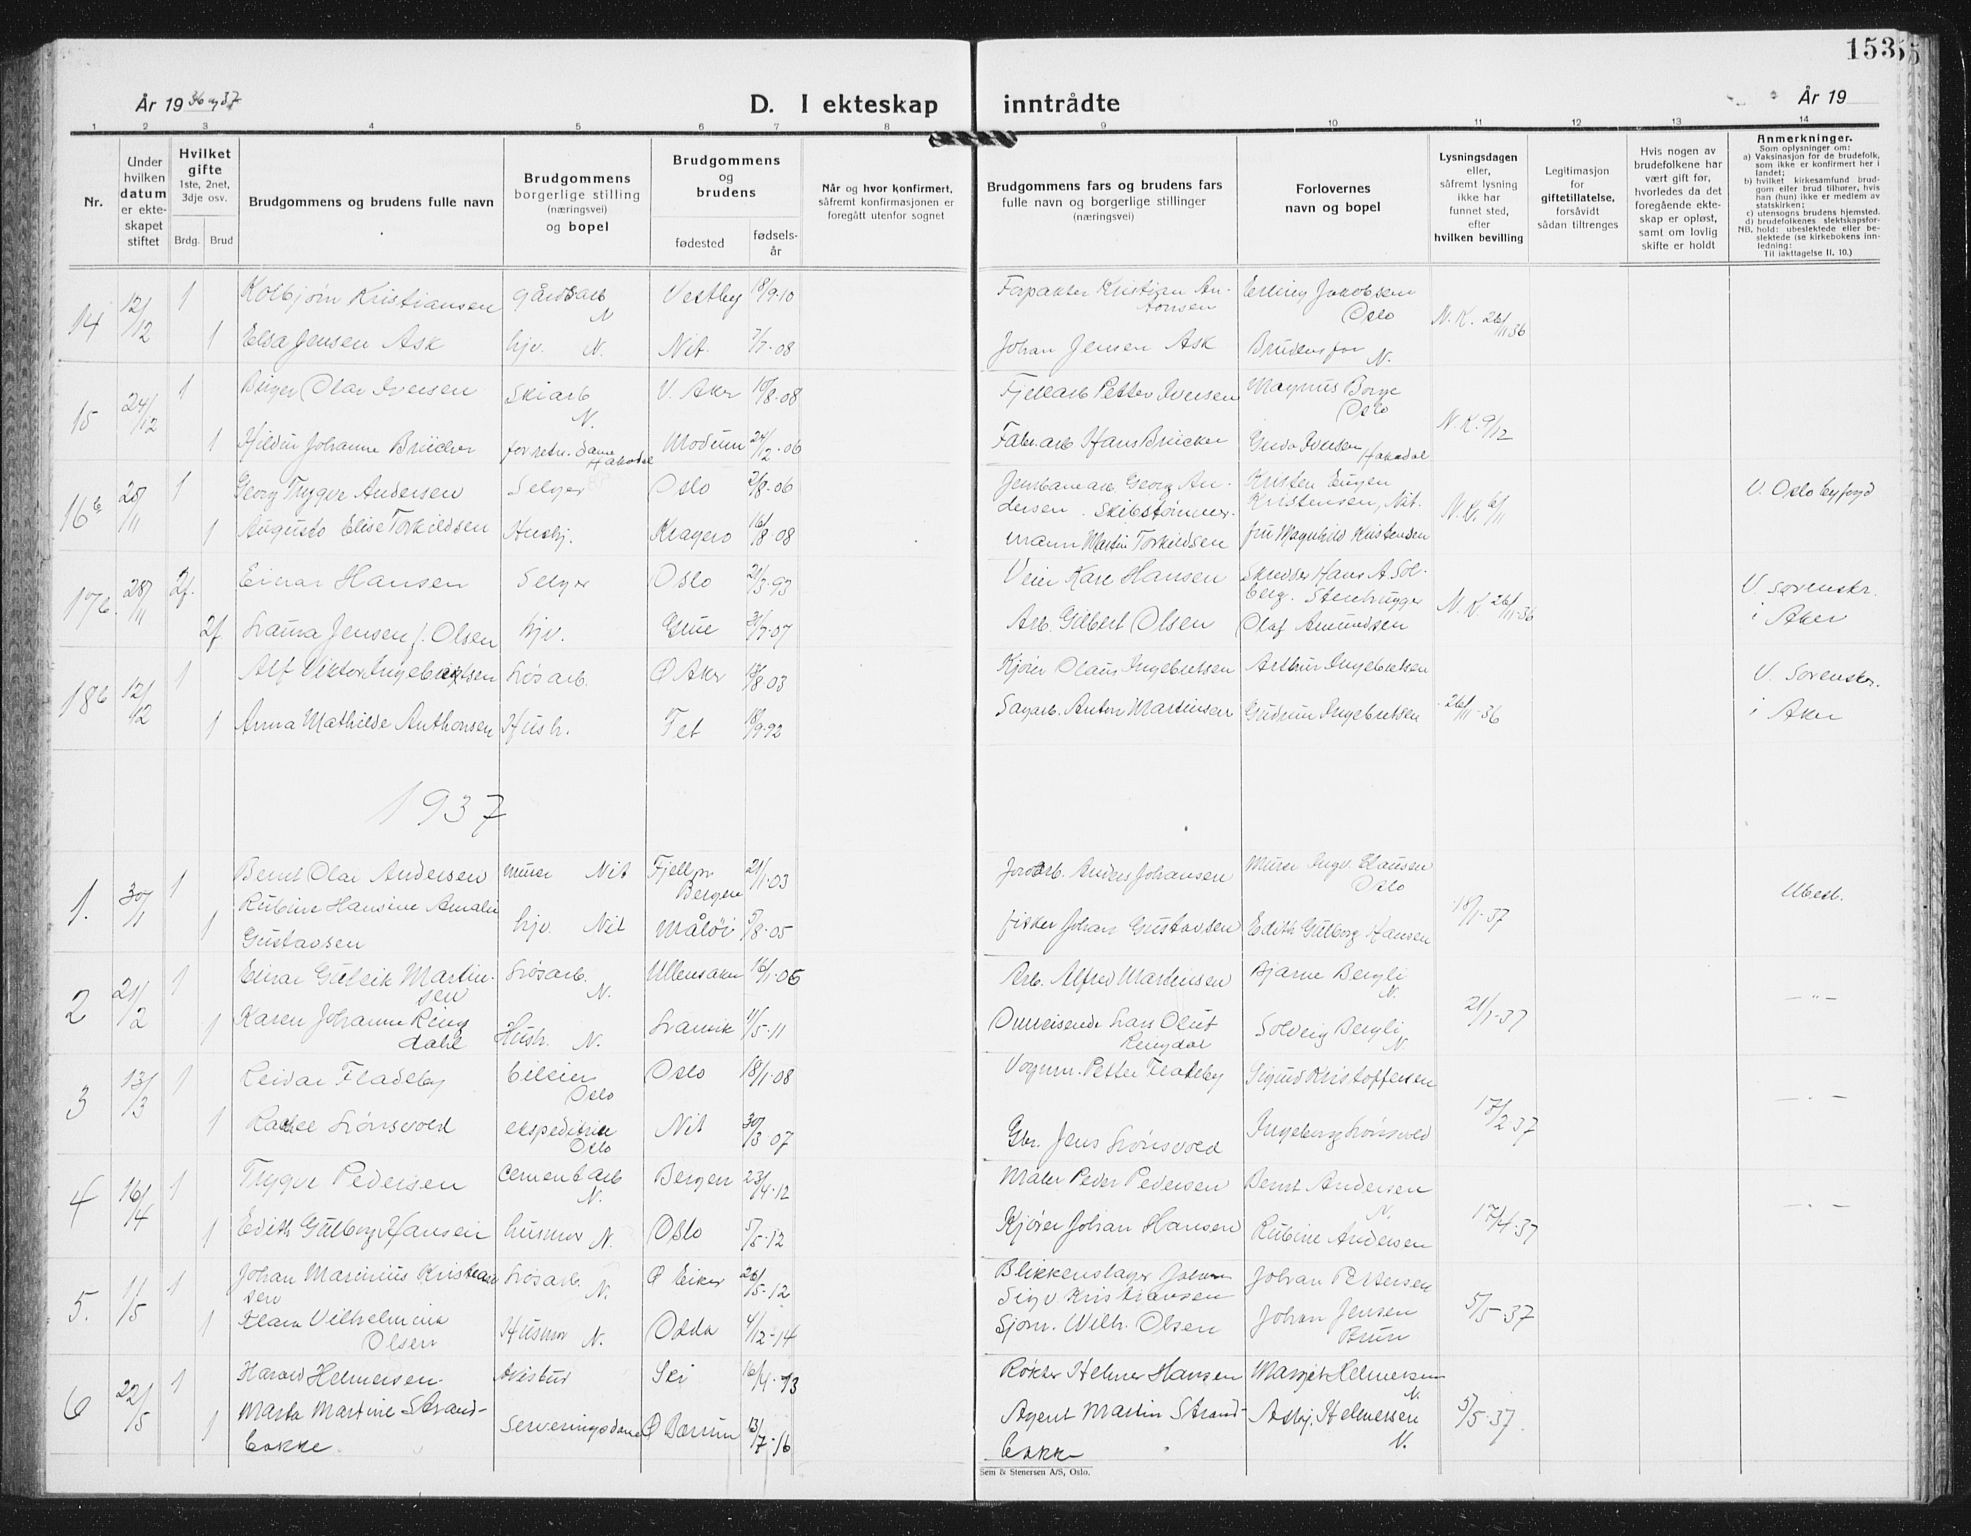 153
År 19 36 og 37
D. I ekteskap inntrådte
År 19
1 2 3 4 5 6 7 8 9 10 11 12 13 14
Nr.
Under hvilken datum er ekteskapet stiftet
Hvilket gifte
1ste, 2net, 3dje osv.
Brdg. Brud
Brudgommens og brudens fulle navn
Brudgommens borgerlige stilling (næringsvei) og bopel
Brudgommens og brudens
fødested
fødselsår
Når og hvor konfirmert, såfremt konfirmasjonen er foregått utenfor sognet
Brudgommens fars og brudens fars fulle navn og borgerlige stillinger (næringsvei)
Forlovernes navn og bopel
Lysningsdagen eller, såfremt lysning ikke har funnet sted, efter hvilken bevilling
Legitimasjon for giftetillatelse, forsåvidt sådan tiltrenges
Hvis nogen av brudefolkene har vært gift før, hvorledes da det foregående ekteskap er opløst, samt om lovlig skifte er holdt
Anmerkninger.
Som oplysninger om:
a) Vaksinasjon for de brudefolk, som ikke er konfirmert her i landet;
b) hvilket kirkesamfund brudgom eller brud tilhører, hvis han (hun) ikke er medlem av statskirken;
c) utensogns brudens hjemsted.
d) brudefolkenes slektskapsforhold: ubeslektede eller beslektede (se kirkebokens innledning:
NB.
Til iakttagelse II. 10.)
14 12/12 1 Kolbjørn Kristiansen gårdsarb N Vestby 18/9-10 Forpakter Kristian Antonsen Erling Jakobsen Oslo N.K. 26/11 36
1 Elsa Jensen Ask hjv. N. Nit. 7/7-08 Johan Jensen Ask Brudens far N.
15 24/12 1 Birger Olav Iversen Skiarb N. V. Aker 10/8-08 Fjellarb Petter Iversen Magnus Borge Oslo N.K. 9/12
1 Johanne forretn.dame Hakadal Modum 24/12-06 Fabr.arb Hans Iversen Hakadal
16b 1 Georg Trygve Andersen Selger Oslo 2/8-06 Jernbanearb. Georg Andersen. Kristen Eugen Kristensen, Nit. N.K. 6/11 V. Oslo byfogd
1 Augusta Elise Torkildsen Hushj. Kragerø 16/8-08 Skibstømmermann Martin Torkildsen fru Magnhild Kristensen
17b. 28/11 2f. Einar Hansen Selger Oslo 21/3-93 Veier Karl Hansen Skredder Hans A. Solberg. Stenhugger N.K. 26/11-36 V. sorenskr. i Aker
2f Laura Jensen f. Olsen hjv. Grue 31/7-07 Arb. Gilbert Olsen Olaf Amundsen
18b 12/12 1 Alf Viktor Ingebretsen Løsarb. Ø Aker 18/8-03 Kjører Olaus Ingebretsen Arthur Ingebretsen 26/11-36 V. Sorenskr. i Aker
1 Anna Mathilde Anthonsen Hush. Fet 18/9-92 Sagarb. Anton Martinsen Gudrun Ingebretsen
1937
1. 30/1 1 Bernt Olav Andersen murer Nit Bergen 21/1-03 Jordarb. Anders Johansen Murer Ingv. Clausen Oslo 18/1-37 Ubesl.
1 Rubine Hansine Amalie Gustavsen hjv. Nit Måløi 5/8-05 fisker Johan Gustavsen Edith Gulborg Hansen
2 21/2 1 Einar Gulbrik Martinsen Løsarb. N. Ullensaker 16/1-06 Arb. Alfred Martinsen Bjarne Bergli N. 21/1-37 - " -
1 Karen Johanne Ringdahl Hush. N. Larvik 11/5-11 Omreisende Lars Oluf Ringdal Solveig Bergli N.
3 13/3 1 Reidar Fladeby bileier Oslo Oslo 18/1-08 Vognm. Petter Fladeby Sigurd Kristoffersen 18/2 37 - " -
1 Rachel Lønsvold ekspeditrise Oslo Nit 30/3 07 Gbr. Jens Lønsvold Ingeborg Lønsvold
4 16/4 1 Trygve Pedersen cementarb N. Bergen 23/4-12 Maler Peder Pedersen Bernt Andersen N. 17/4-37 - " -
1 Edith Gulborg Hansen husmor N. Oslo 5/5-12 Kjører Johan Hansen Rubine Andersen
5. 1/5 1 Johan Marinius Kristiansen Løsarb. N. Ø Eiker 26/5-12 Blikkenslager Johan Sigv. Kristiansen Johan Pettersen 5/5-37
1 Klara Vilhelmine Olsen Husmor N. Odda 4/12-14 Sjøm. Wilh. Olsen Johan Jensen Brun
6 22/5 1 Harald Helmersen Ski 16/4-13 Røkter Helmer Hansen Margit Helmersen N. 5/5-37.
1 Marta Martine Strandbakke. Serveringsdame Ø Bærum 13/7-16 Agent Martin Strandbakke Asbj. Helmersen N.
Sem & Stenersen A/S, Oslo.